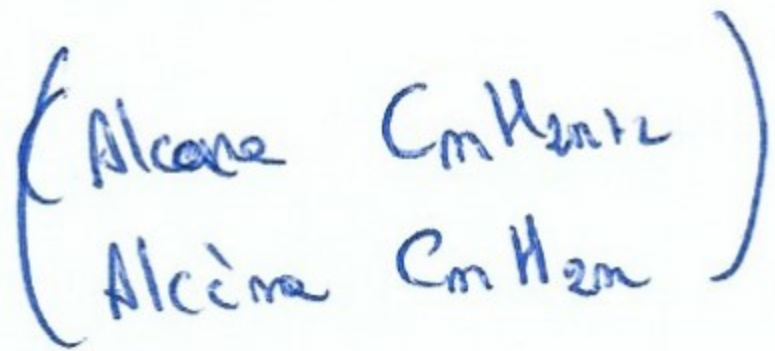 (Alcane CnH2n+2)
(Alcène CnH2n)